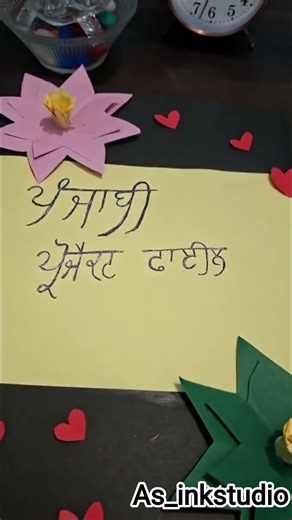 7 6 5
ਪੰਜਾਬੀ
ਪ੍ਰੋਜੈਕਟ ਫਾਈਲ
As_inkstudio